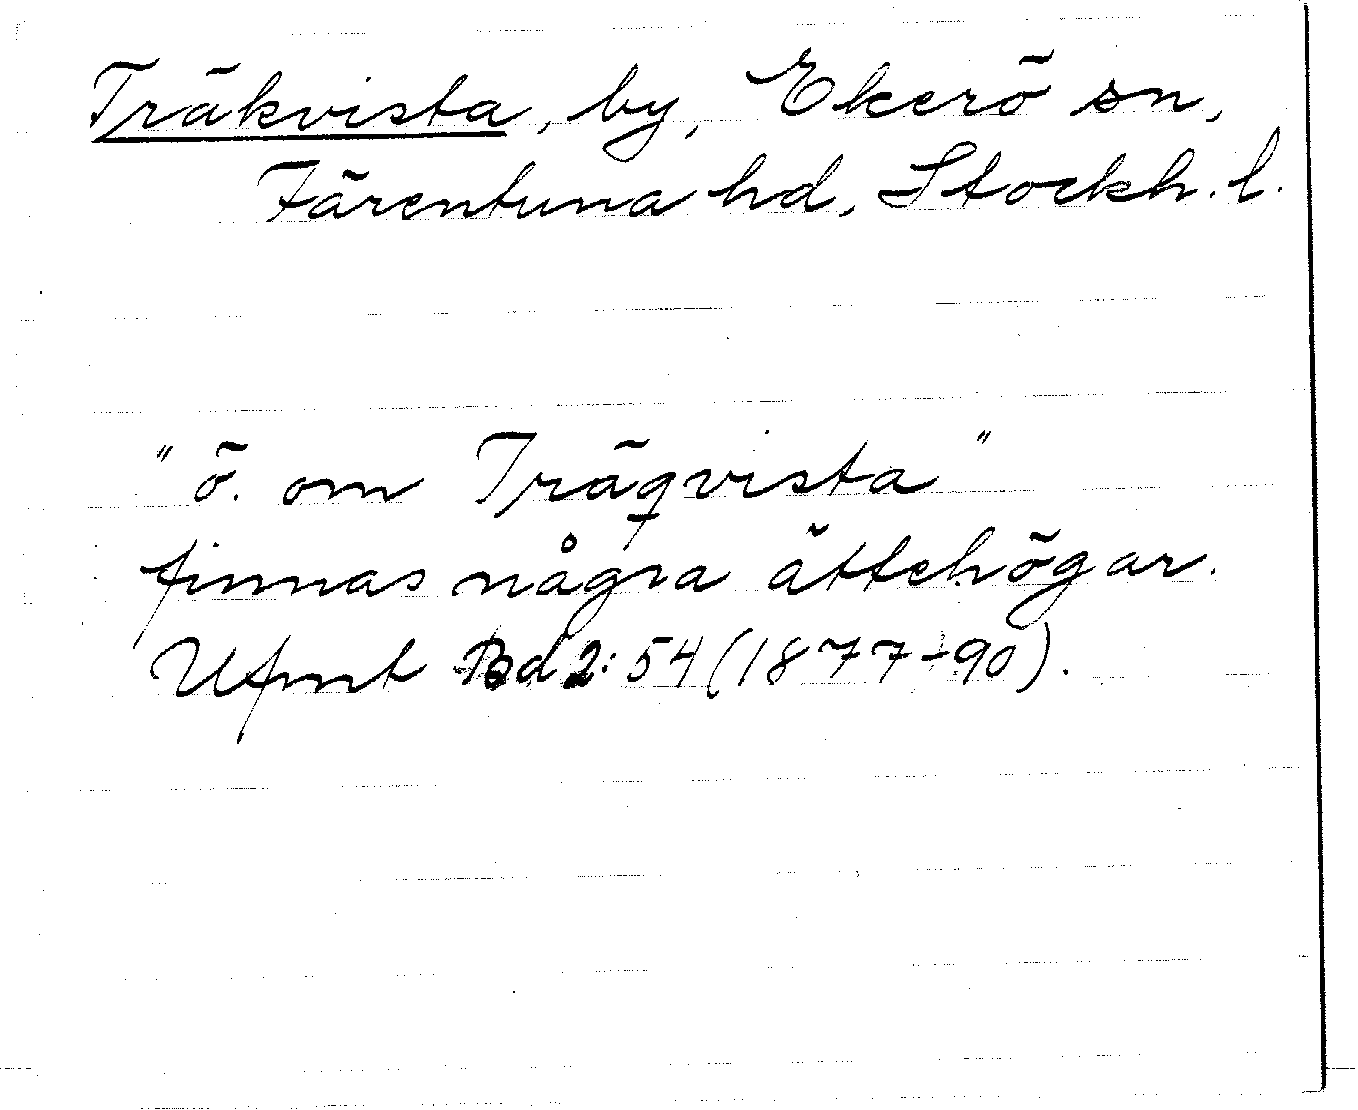 Träkvista, by, Ekerö sn,
Färentuna hd, Stockh. l.
"ö. om Träqvista"
finnas några ättehögar.
Ufmt Bd 2: 54 (1877-90).